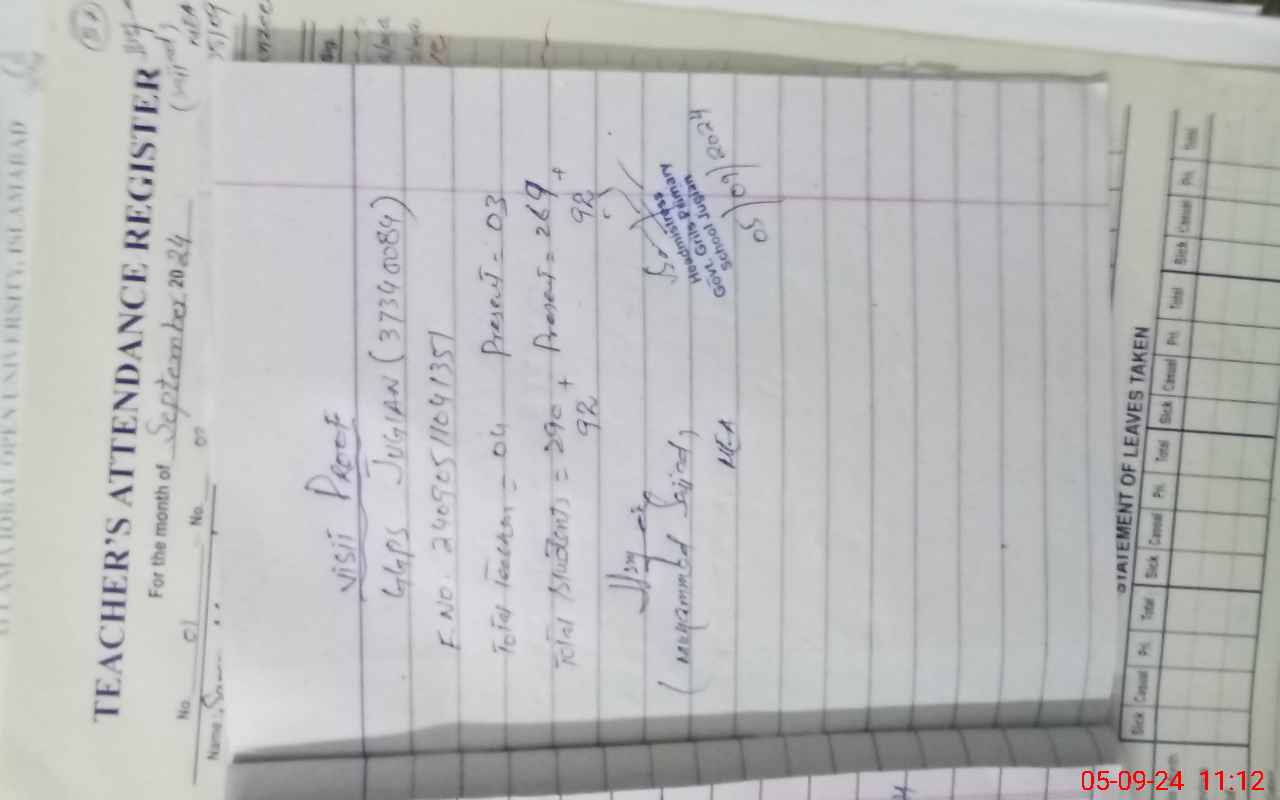 ALLAMA IQBAL OPEN UNIVERSITY, ISLAMABAD
TEACHER'S ATTENDANCE REGISTER
For the month of September 2024
No. 01 No. 07
Name:
MEA
VISIT PROOF
GGPS JUGIAN (37340084)
F.NO. 24090511041351
Total Teachers = 04 Present = 03
Total Students = 290 + Present = 269 +
92 92
(Muhammad Sajjad,
MEA
Headmistress
Govt. Grils Primary
School Jugian
05/09/2024
STATEMENT OF LEAVES TAKEN
Sick Casual Pri. Total Sick Casual Pri. Total Sick Casual Pri. Total Sick Casual Pri. Total
05-09-24 11:12